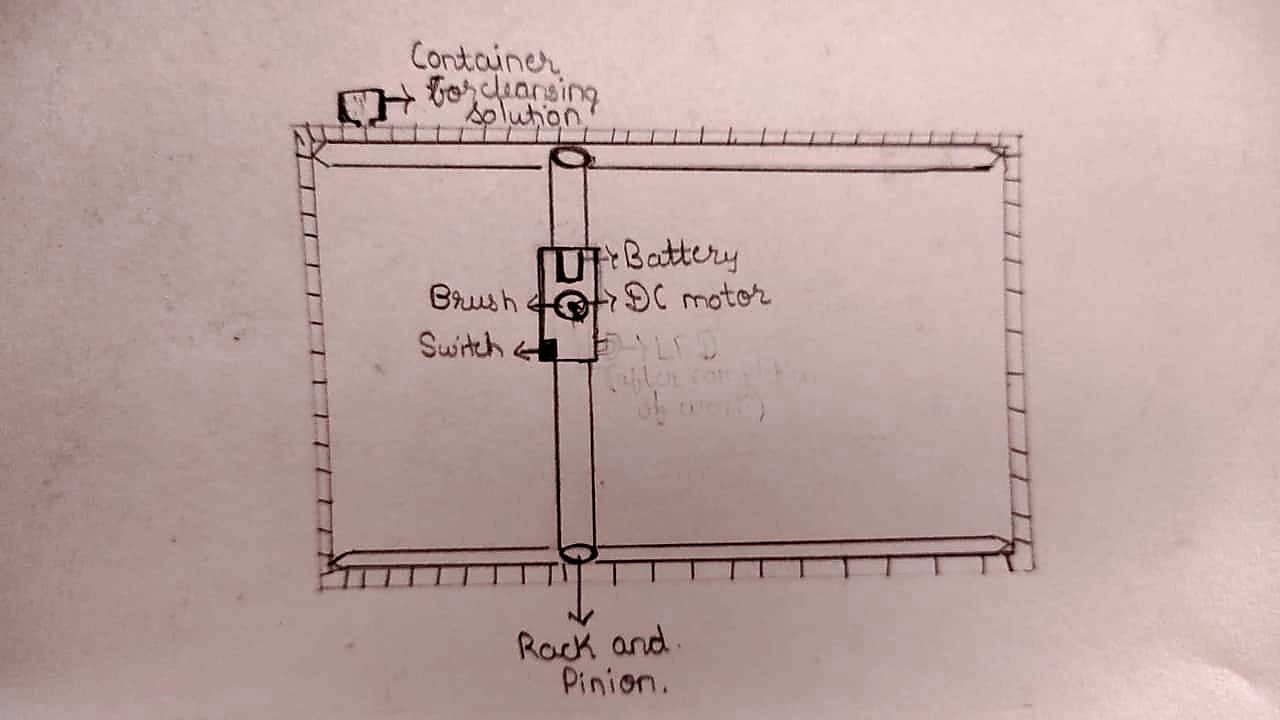 Container
for cleansing
solution
Battery
Brush
DC motor
Switch
LED
(after completion
of work)
Rack and
Pinion.